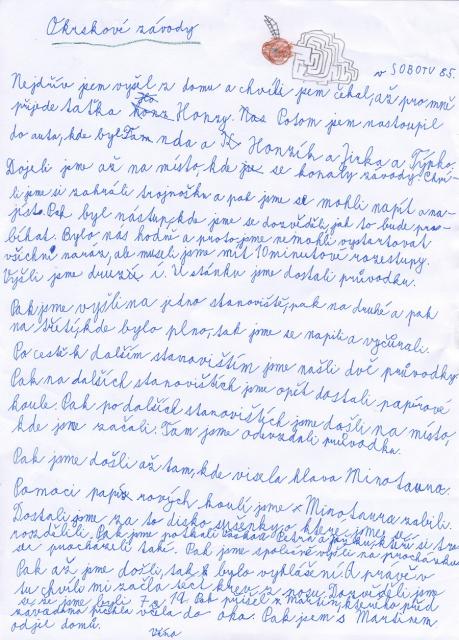 Okrskové závody
v SOBOTU 8.5.
Nejdřív jsem vyšel z domu a chvíli jsem čekal, až pro mně
přijede taťka Honzy. Pak Potom jsem nastoupil
do auta, kde byl Tom nda a Honzík a Jirka a Fýpko.
Dojeli jsme až na místo, kde se konaly závody. Chví-
li jsme si zahráli trojnožku a pak jsme se mohli napít a na-
jíst. Pak byl nástup, kde jsme se dozvěděli, jak to bude pro-
bíhat. Bylo nás hodně a proto jsme nemohli vystartovat
všichni naráz, ale museli jsme mít 10 minutové rozestupy.
Vyšli jsme druzí. U stánku jsme dostali průvodku.
Pak jsme vyšli na jedno stanoviště, pak na druhé a pak
na třetí, kde bylo plno, tak jsme se napili a vyčůrali.
Po cestě k dalším stanovištím jsme našli dvě průvodky.
Pak na dalších stanovištích jsme opět dostali papírové
koule. Pak po dalších stanovištích jsme došli na místo,
kde jsme začali. Tam jsme odevzdali průvodku.
Pak jsme došli až tam, kde visela hlava Minotaura.
Pomocí papírových koulí jsme Minotaura zabili.
Dostali jsme za to disko sušenky, které jsme si
rozdělili. Pak jsme potkali
se procházeli taky. Pak jsme společně vyšli na procházku.
Pak až jsme došli, tak bylo vyhlášení. A právě v
tu chvíli mi začla téct krev z nosu. Dozvěděli jsme
se, že jsme byli 7. a 19. Pak přišel Martin, kterému před
závodama píchla včela do oka. Pak jsem s Martinem
odjel domů.